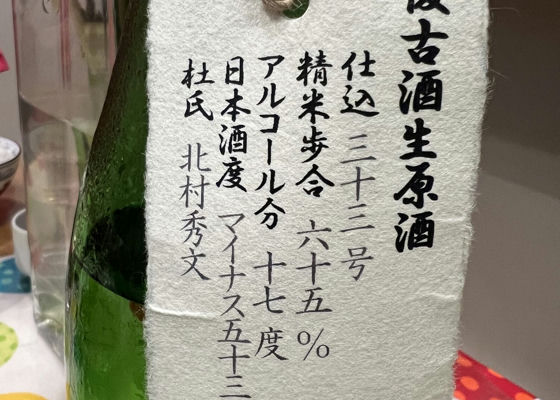 復古酒生原酒
仕込 三十三号
精米歩合 六十五%
アルコール分 十七度
日本酒度 マイナス五十三
杜氏 北村秀文